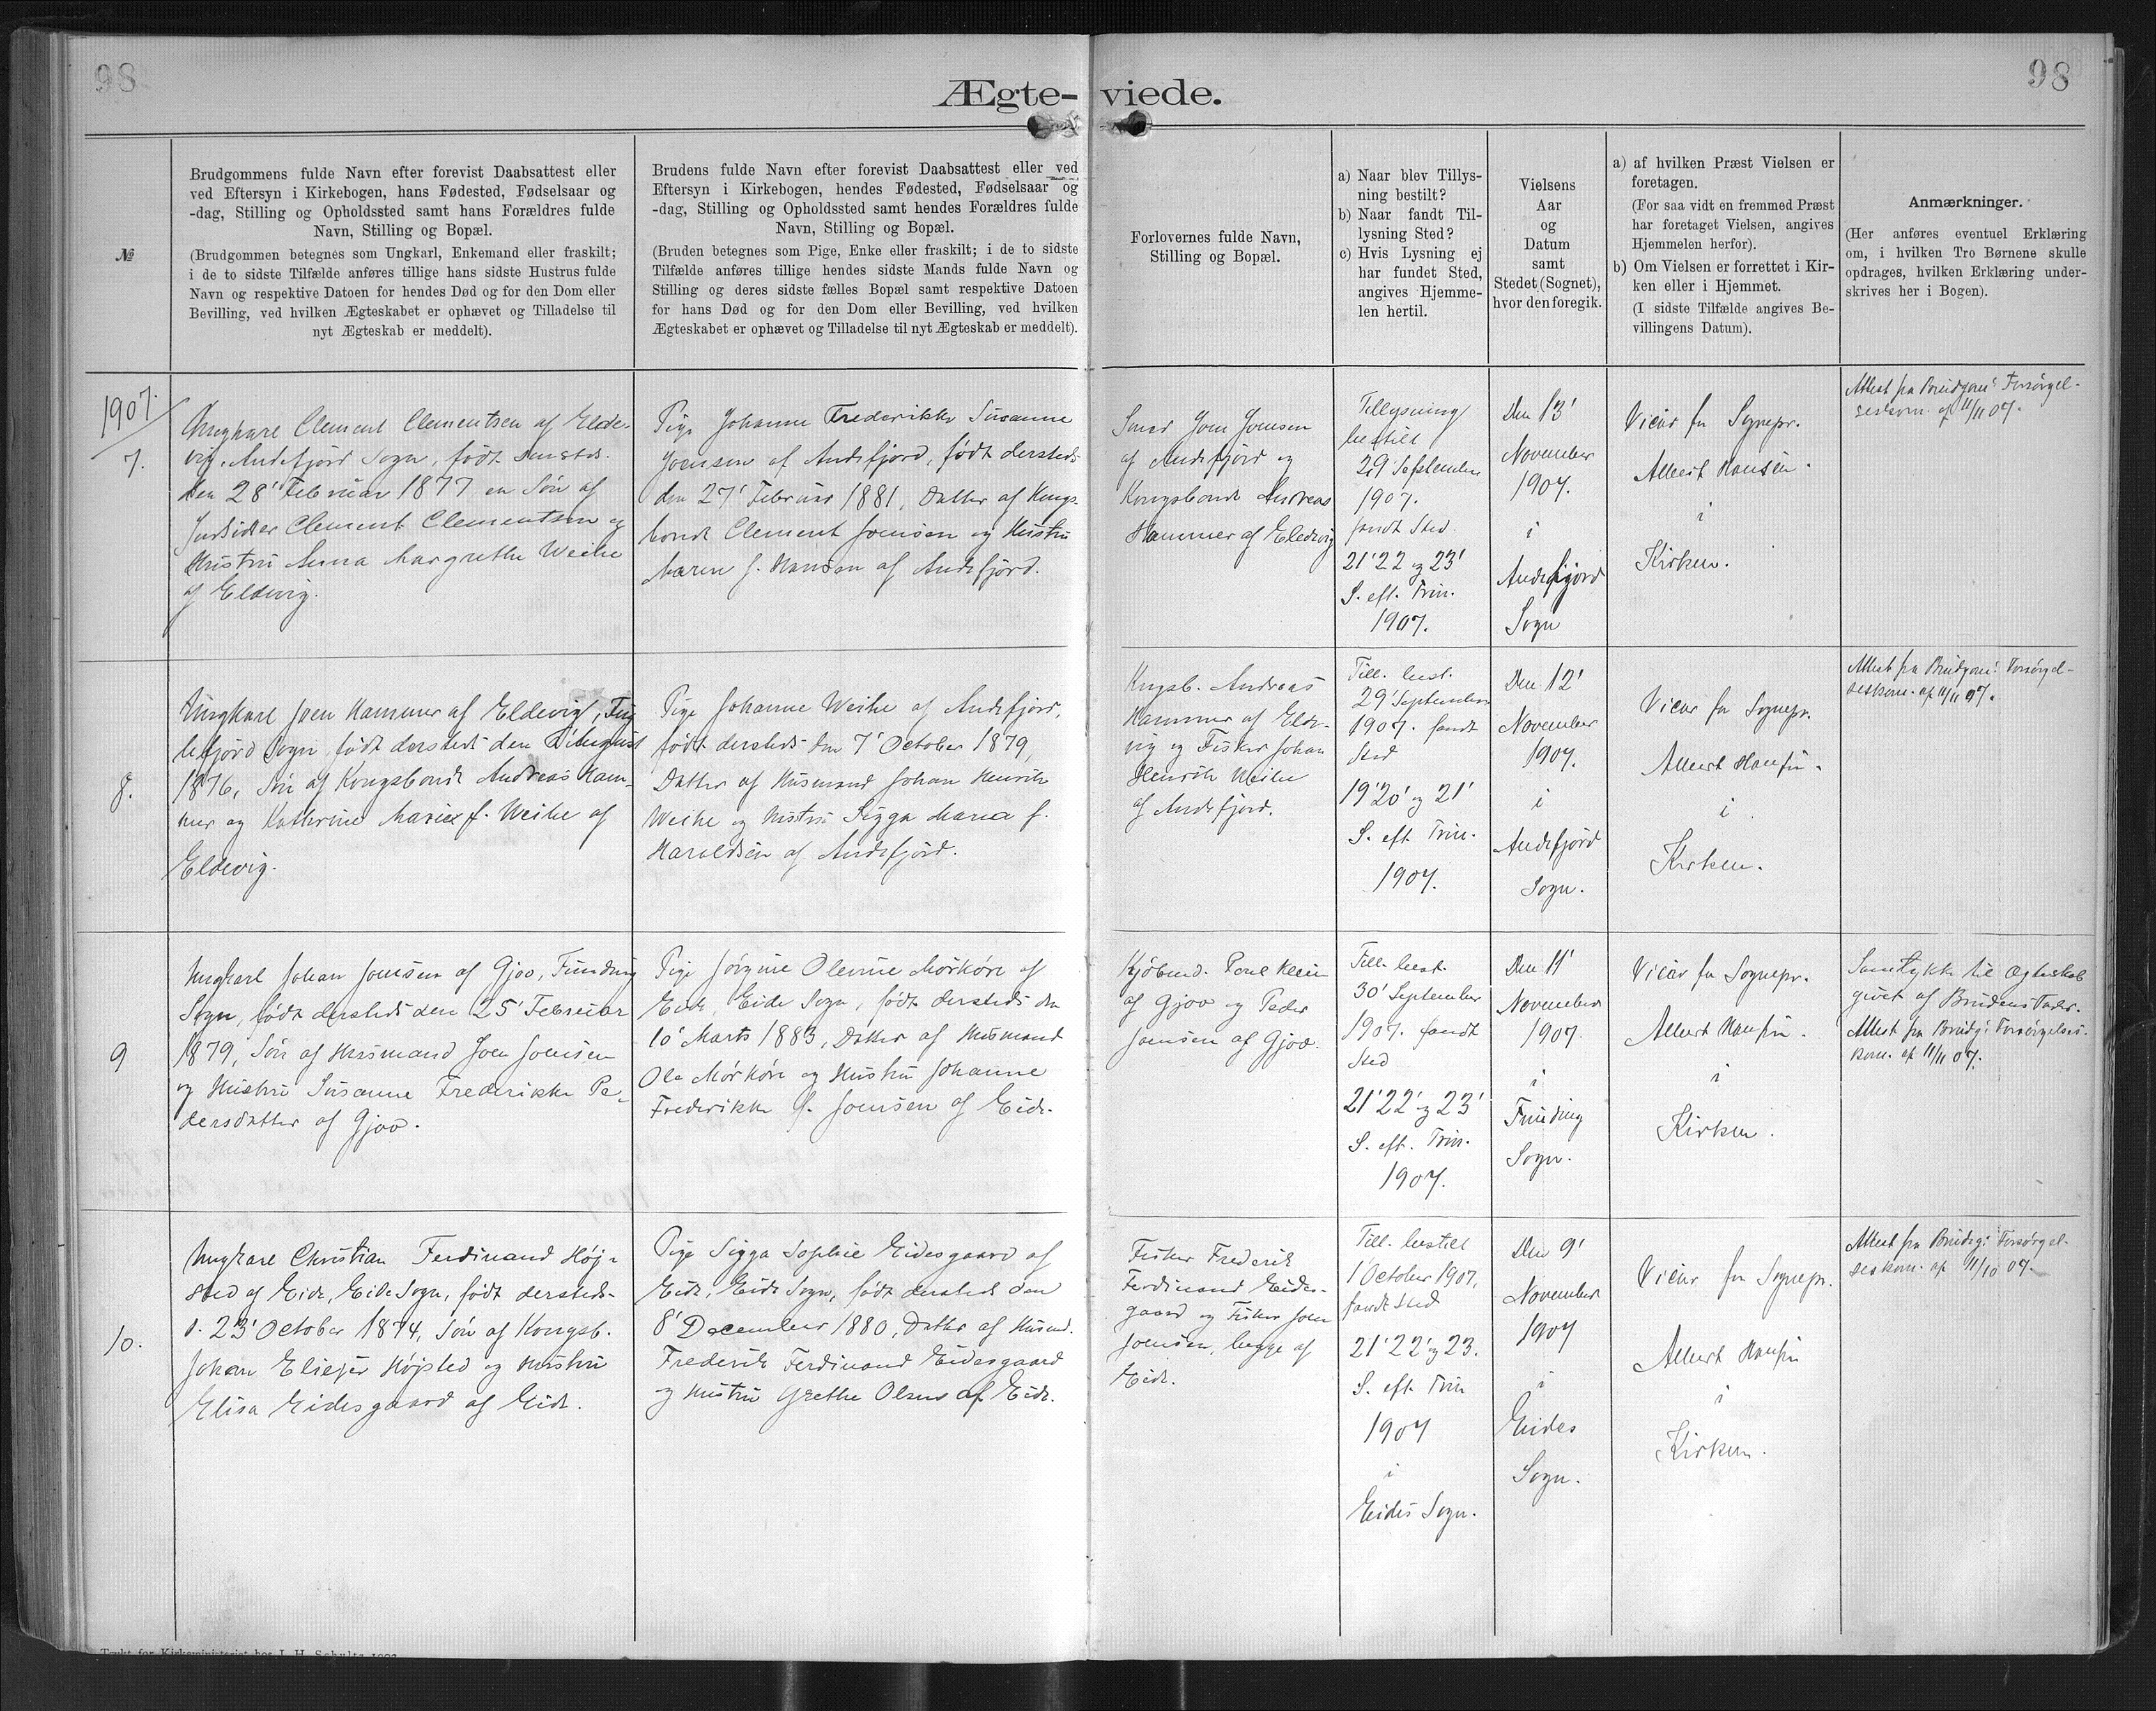 98
98
Ægte-viede.
№
Brudgommens fulde Navn efter forevist Daabsattest eller
ved Eftersyn i Kirkebogen, hans Fødested, Fødselsaar og
-dag, Stilling og Opholdssted samt hans Forældres fulde
Navn, Stilling og Bopæl.
(Brudgommen betegnes som Ungkarl, Enkemand eller fraskilt;
i de to sidste Tilfælde anføres tillige hans sidste Hustrus fulde
Navn og respektive Datoen for hendes Død og for den Dom eller
Bevilling, ved hvilken Ægteskabet er ophævet og Tilladelse til
nyt Ægteskab er meddelt).
Brudens fulde Navn efter forevist Daabsattest eller ved
Eftersyn i Kirkebogen, hendes Fødested, Fødselsaar og
-dag, Stilling og Opholdssted samt hendes Forældres fulde
Navn, Stilling og Bopæl.
(Bruden betegnes som Pige, Enke eller fraskilt; i de to sidste
Tilfælde anføres tillige hendes sidste Mands fulde Navn og
Stilling og deres sidste fælles Bopæl samt respektive Datoen
for hans Død og for den Dom eller Bevilling, ved hvilken
Ægteskabet er ophævet og Tilladelse til nyt Ægteskab er meddelt).
Forlovernes fulde Navn,
Stilling og Bopæl.
a) Naar blev Tillys-
ning bestilt?
b) Naar fandt Til-
lysning Sted?
c) Hvis Lysning ej
har fundet Sted,
angives Hjemme-
len hertil.
Vielsens
Aar
og
Datum
samt
Stedet (Sognet),
hvor den foregik.
a) af hvilken Præst Vielsen er
foretagen.
(For saa vidt en fremmed Præst
har foretaget Vielsen, angives
Hjemmelen herfor).
b) Om Vielsen er forrettet i Kir-
ken eller i Hjemmet.
(I sidste Tilfælde angives Be-
villingens Datum).
Anmærkninger.
(Her anføres eventuel Erklæring
om, i hvilken Tro Børnene skulle
opdrages, hvilken Erklæring under-
skrives her i Bogen).
1907.
7.
Ungkarl Clement Clementsen af Elde-
vig, Andefjord Sogn, født sammesteds.
den 28' Februar 1877 en Søn af
Indsidder Clement Clementsen og
Hustru Anna Margrethe Weihe
af Eldevig.
Pige Johanne Frederikke Susanne
Joensen af Andefjord, født dersteds
den 27' Februar 1881, Datter af Kongs-
bonde Clement Joensen og Hustru
Maren f. Hansen af Andefjord.
Smed Joen Joensen
af Andefjord og
Kongsbonde Andreas
Hammer af Eldevig
Tillysning
bestilt
29 September
1907.
fandt Sted
21' 22 og 23'
S. eft. Trin.
1907.
Den 13'
November
1907.
i
Andefjord
Sogn
Vicar for Sognepr.
Albert Hansen.
i
Kirken.
Attest fra Brudgoms Forsørgel-
seskom. af 11/11 07.
8.
Ungkarl Joen Hammer af Eldevig, Fug
lefjord Sogn, født dersteds den August
1876, Søn af Kongsbonde Andreas Ham-
mer og Kathrine Marie f. Weihe af
Eldevig.
Pige Johanne Weihe af Andefjord,
født dersteds den 7' October 1879,
Datter af Husmand Johan Henrik
Weihe og Hustru Sigga Maria f.
Haraldsen af Andefjord.
Kngsb. Andreas
Hammer af Elde-
vig og Fisker Johan
Henrik Weihe
af Andefjord.
Till. best.
29' September
1907. fandt
Sted
19' 20' og 21'
S. eft. Trin.
1907.
Den 12'
November
1907.
i
Andefjord
Sogn.
Vicar for Sognepr.
Albert Hansen.
i
Kirken.
Attest fra Brudgoms Forsørgel-
seskom. af 11/11 07.
9
Ungkarl Johan Joensen af Gjov, Funding
Sogn, født dersteds den 25' Februar
1879, Søn af Husmand Joen Joensen
og Hustru Susanne Frederikke Pe-
dersdatter af Gjov.
Pige Jørgine Olevine Mørkøre af
Eide, Eide Sogn, født dersteds den
10' Marts 1883, Datter af Husmand
Ole Mørkøre og Hustru Johanne
Frederikke f. Joensen af Eide.
Kjøbmd. Poul Klein
af Gjov og Peder
Joensen af Gjov.
Till. best.
30' September
1907. fandt
Sted
21' 22' og 23'
S. eft. Trin.
1907.
Den 11'
November
1907
i
Funding
Sogn.
Vicar for Sognepr.
Albert Hansen.
i
Kirken.
Samtykke til Ægteskab
givet af Brudens Fader.
Attest fra Brudg: Forsørgelses-
kom. af 11/11 07.
10.
Ungkarl Christian Ferdinand Høj-
sted af Eide, Eide Sogn, født dersteds-
d. 23' October 1874, Søn af Kongsb.
Johan Eliezer Højsted og Hustru
Elisa Eidesgaard af Eide.
Pige Sigga Sophie Eidesgaard af
Eide, Eide Sogn, født dersteds den
8' December 1880, Datter af Husmd.
Frederik Ferdinand Eidesgaard
og Hustru Grethe Olsen af Eide.
Fisker Frederik
Ferdinand Eides-
gaard og Fisker Joen
Joensen, begge af
Eide.
Till. bestilt
1 October 1907,
fandt Sted
21' 22' og 23.
S. eft. Trin
1907
i
Eides Sogn.
Den 9'
November
1907
i
Eides
Sogn.
Vicar for Sognepr.
Albert Hansen
i
Kirken.
Attest fra Brudg: Forsørgel-
seskom. af 11/10 07.